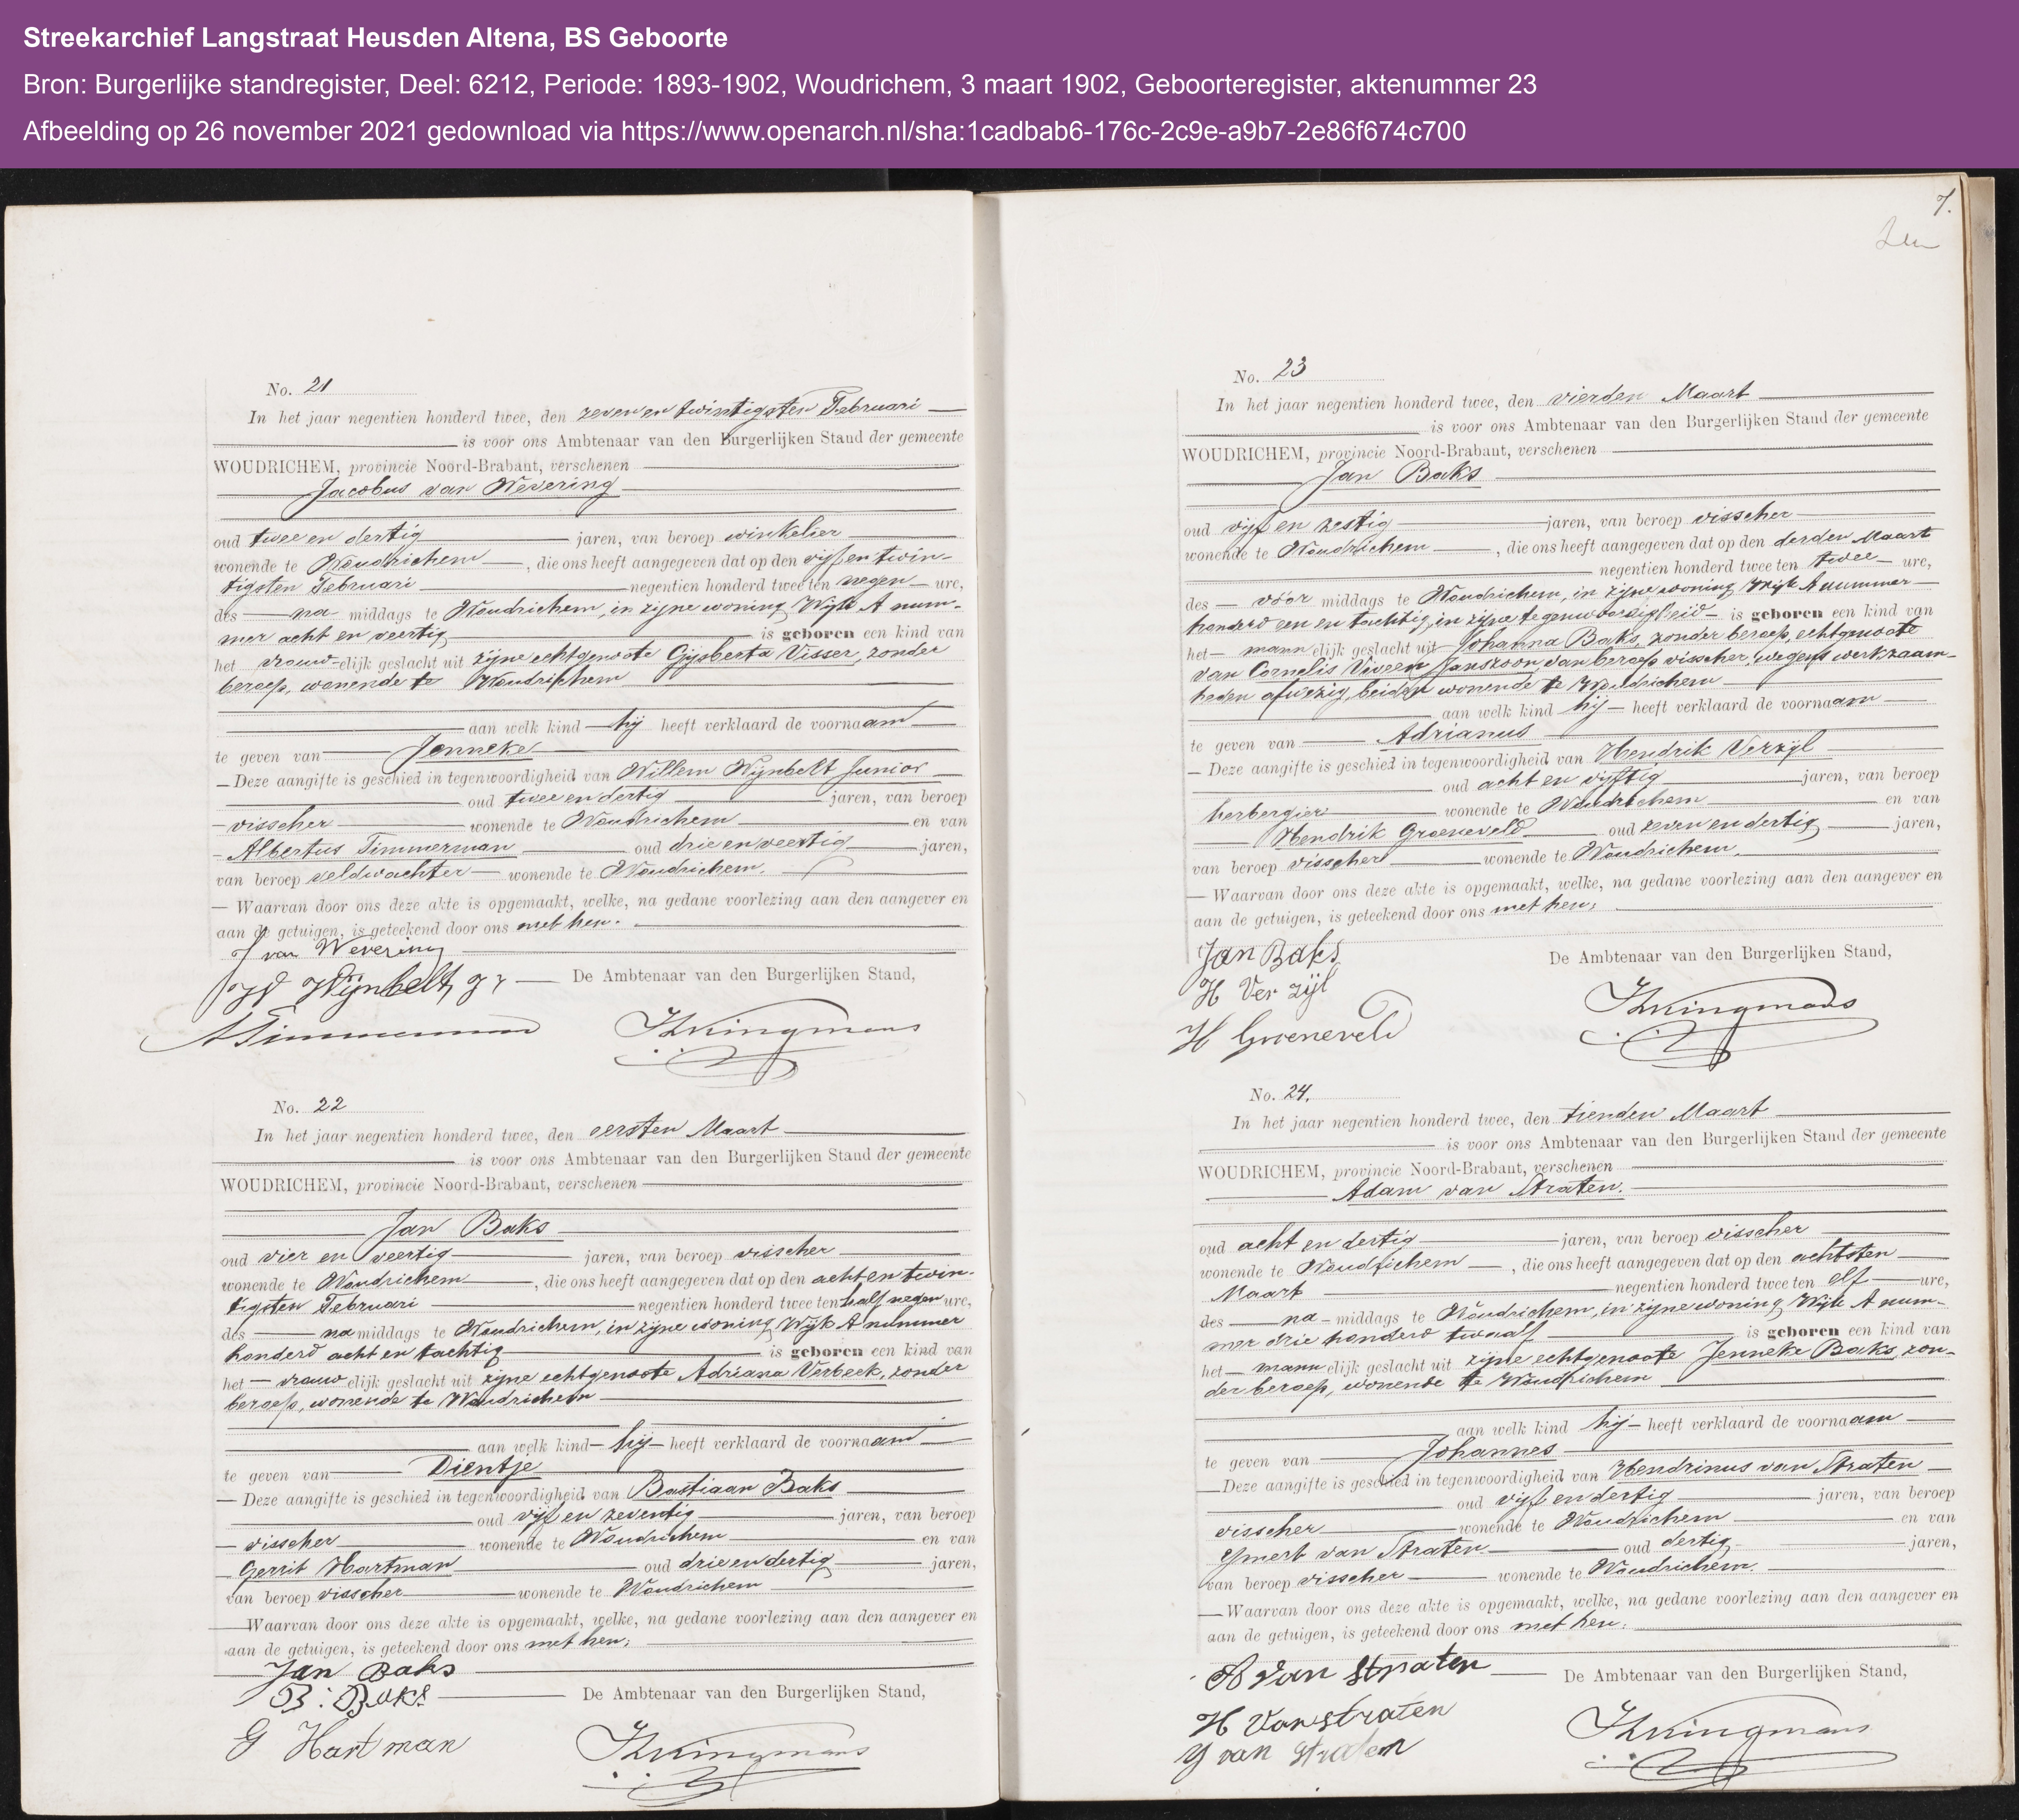 Streekarchief Langstraat Heusden Altena, BS Geboorte
Bron: Burgerlijke standregister, Deel: 6212, Periode: 1893-1902, Woudrichem, 3 maart 1902, Geboorteregister, aktenummer 23
Afbeelding op 26 november 2021 gedownload via https://www.openarch.nl/sha:1cadbab6-176c-2c9e-a9b7-2e86f674c700
No. 21
In het jaar negentien honderd twee, den zeven en twintigsten Februari
is voor ons Ambtenaar van den Burgerlijken Stand der gemeente
WOUDRICHEM, provincie Noord-Brabant, verschenen
Jacobus van Wevering
oud twee en dertig jaren, van beroep winkelier
wonende te Woudrichem, die ons heeft aangegeven dat op den vijf en twin-
tigsten Februari negentien honderd twee ten negen ure,
des na middags te Woudrichem, in zijne woning Wijk A num-
mer acht en veertig is geboren een kind van
het vrouwelijk geslacht uit zijne echtgenoote Gijsberta Visser, zonder
beroep, wonende te Woudrichem
aan welk kind hij heeft verklaard de voornaam
te geven van Jenneke
Deze aangifte is geschied in tegenwoordigheid van Willem Wijnbelt Junior
oud twee en dertig jaren, van beroep
visscher wonende te Woudrichem en van
Albertus Timmerman oud drie en veertig jaren,
van beroep veldwachter wonende te Woudrichem.
Waarvan door ons deze akte is opgemaakt, welke, na gedane voorlezing aan den aangever en
aan de getuigen, is geteekend door ons met hen.
J van Wevering
W Wijnbelt Jr De Ambtenaar van den Burgerlijken Stand,
A Timmerman
No. 22
In het jaar negentien honderd twee, den eersten Maart
is voor ons Ambtenaar van den Burgerlijken Stand der gemeente
WOUDRICHEM, provincie Noord-Brabant, verschenen
Jan Baks
oud vier en veertig jaren, van beroep visscher
wonende te Woudrichem, die ons heeft aangegeven dat op den acht en twin-
tigsten Februari negentien honderd twee ten half negen ure,
des na middags te Woudrichem, in zijne woning Wijk A nummer
honderd acht en tachtig is geboren een kind van
het vrouwelijk geslacht uit zijne echtgenoote Adriana Verbeek, zonder
beroep, wonende te Woudrichem
aan welk kind hij heeft verklaard de voornaam
te geven van Dientje
Deze aangifte is geschied in tegenwoordigheid van Bastiaan Baks
oud vijf en zeventig jaren, van beroep
visscher wonende te Woudrichem en van
Gerrit Hartman oud drie en dertig jaren,
van beroep visscher wonende te Woudrichem
Waarvan door ons deze akte is opgemaakt, welke, na gedane voorlezing aan den aangever en
aan de getuigen, is geteekend door ons met hen;
Jan Baks
B: Baks De Ambtenaar van den Burgerlijken Stand,
G Hartman
7.
No. 23
In het jaar negentien honderd twee, den vierden Maart
is voor ons Ambtenaar van den Burgerlijken Stand der gemeente
WOUDRICHEM, provincie Noord-Brabant, verschenen
Jan Baks
oud vijf en zestig jaren, van beroep visscher
wonende te Woudrichem, die ons heeft aangegeven dat op den derden Maart
negentien honderd twee ten twee ure,
des vóór middags te Woudrichem, in zijne woning Wijk A nummer
honderd een en tachtig, in zijne tegenwoordigheid is geboren een kind van
het mannelijk geslacht uit Johanna Baks, zonder beroep, echtgenoote
van Cornelis Viveen Janszoon van beroep visscher, wegens werkzaam-
heden afwezig, beiden wonende te Woudrichem
aan welk kind hij heeft verklaard de voornaam
te geven van Adrianus
Deze aangifte is geschied in tegenwoordigheid van Hendrik Verzijl
oud acht en vijftig jaren, van beroep
herbergier wonende te Woudrichem en van
Hendrik Groeneveld oud zeven en dertig jaren,
van beroep visscher wonende te Woudrichem.
Waarvan door ons deze akte is opgemaakt, welke, na gedane voorlezing aan den aangever en
aan de getuigen, is geteekend door ons met hen;
Jan Baks De Ambtenaar van den Burgerlijken Stand,
H Verzijl
H Groeneveld
No. 24.
In het jaar negentien honderd twee, den tienden Maart
is voor ons Ambtenaar van den Burgerlijken Stand der gemeente
WOUDRICHEM, provincie Noord-Brabant, verschenen
Adam van Straten.
oud acht en dertig jaren, van beroep visscher
wonende te Woudrichem, die ons heeft aangegeven dat op den achtsten
Maart negentien honderd twee ten elf ure,
des na middags te Woudrichem, in zijne woning Wijk A num-
mer drie honderd twaalf is geboren een kind van
het mannelijk geslacht uit zijne echtgenoote Jenneke Baks, zon-
der beroep, wonende te Woudrichem
aan welk kind hij heeft verklaard de voornaam
te geven van Johannes
Deze aangifte is geschied in tegenwoordigheid van Hendrinus van Straten
oud vijf en dertig jaren, van beroep
visscher wonende te Woudrichem en van
Ymert van Straten oud dertig jaren,
van beroep visscher wonende te Woudrichem.
Waarvan door ons deze akte is opgemaakt, welke, na gedane voorlezing aan den aangever en
aan de getuigen, is geteekend door ons met hen.
A van Straten De Ambtenaar van den Burgerlijken Stand,
H Van Straten
Y van Straten